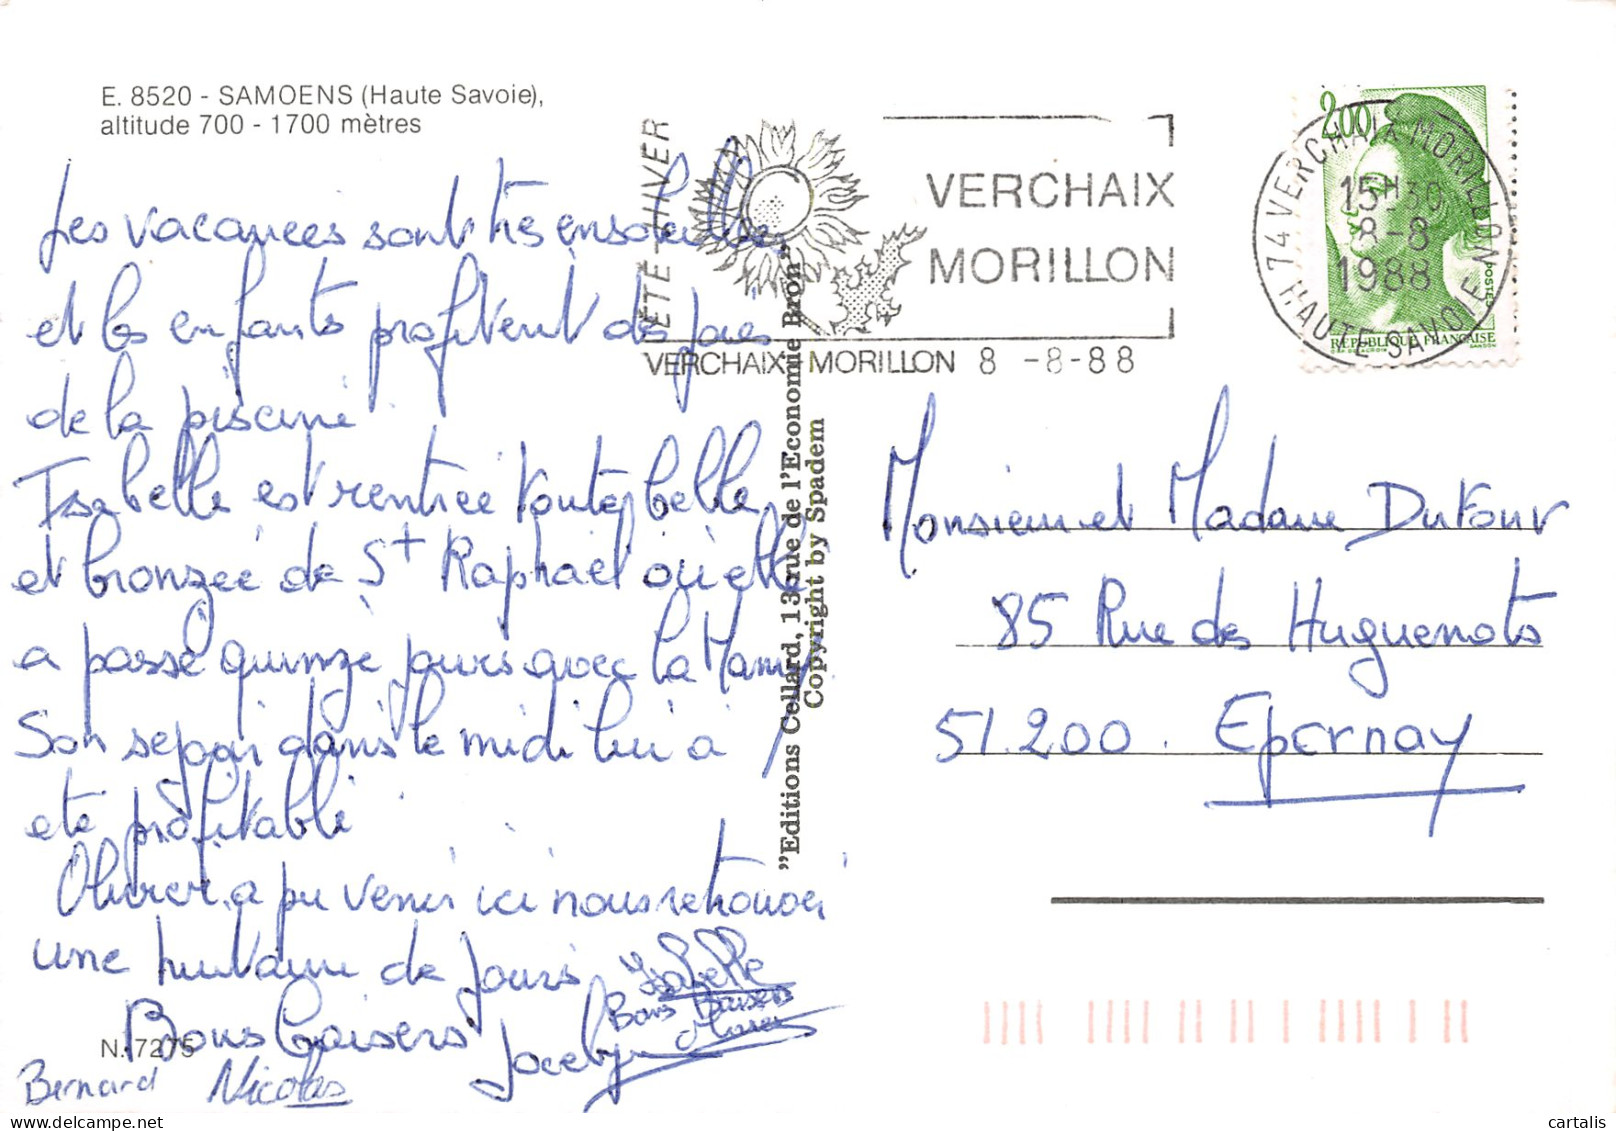 E. 8520 - SAMOENS (Haute Savoie),
altitude 700 - 1700 mètres
Les vacances sont très ensoleillées
et les enfants profitent des joies
de la piscine
Isabelle est rentrée toute belle
et bronzée de St Raphael où elle
a passé quinze jours avec la Mamy
Son séjour dans le midi lui a
été profitable
Olivier a pu venir ici nous retrouver
une huitaine de jours
Bons baisers
Jocelyne
Isabelle
Bons Baisers
Bernard Nicolas
N. 7275
"Editions Cellard, 13 rue de l'Economie Bron"
Copyright by Spadem
ÉTÉ - HIVER
VERCHAIX
MORILLON
VERCHAIX MORILLON 8 -8-88
2,00
POSTES
RÉPUBLIQUE FRANÇAISE
74 VERCHAIX-MORILLON
15H30
8-8
1988
HAUTE-SAVOIE
Monsieur et Madame Dufour
85 Rue des Huguenots
51.200. Epernay
cartalis
delcampe.net